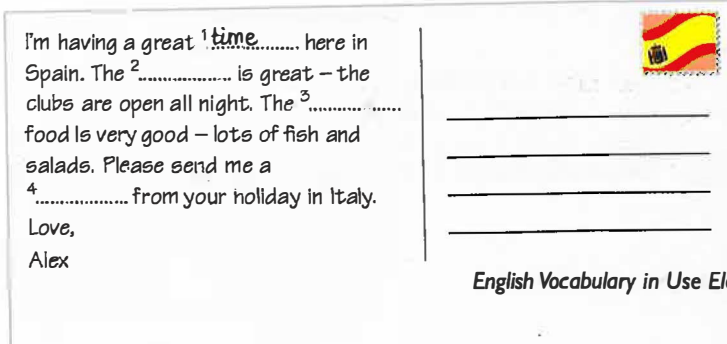 I'm having a great ¹ time ......... here in
Spain. The ² .................. is great – the
clubs are open all night. The ³ ..................
food is very good – lots of fish and
salads. Please send me a
⁴ .................. from your holiday in Italy.
Love,
Alex
English Vocabulary in Use El